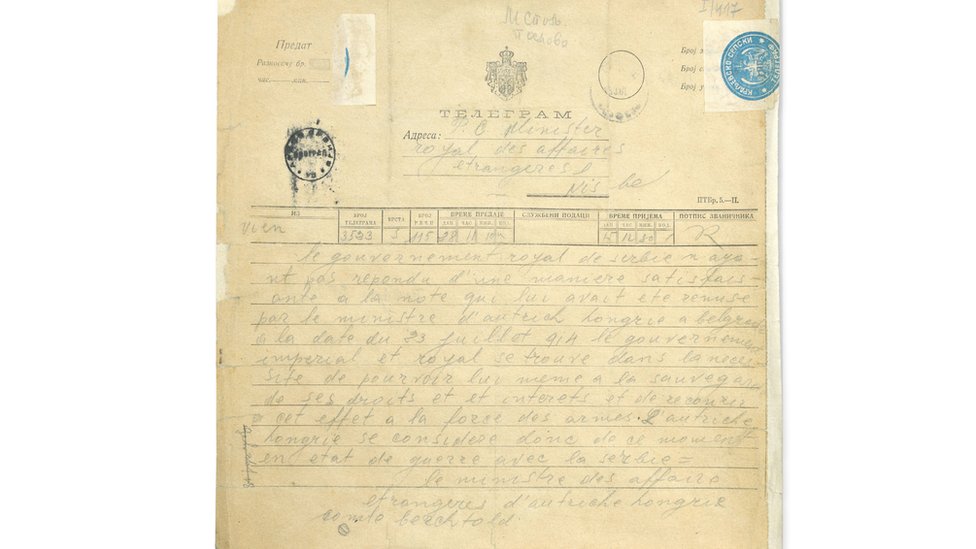 I/417
Предат
Разносачу бр.
час. мин.
Број
Број
Број
КРАЉЕВСКО СРПСКИ
ТЕЛЕГРАМ
Адреса: Minister
royal des affaires
etrangeres
Nis
ПТБр. 5.—II.
ИЗ БРОЈ ТЕЛЕГРАМА ВРСТА БРОЈ РЕЧИ ВРЕМЕ ПРЕДАЈЕ СЛУЖБЕНИ ПОДАЦИ ВРЕМЕ ПРИЈЕМА ПОТПИС ЗВАНИЧНИКА
ДАН ЧАС МИН. ПОД. ДАН ЧАС МИН. ПОД.
Vien 3523 115 28
le gouvernement royal de serbie n aya-
nt pas rependu d'une maniere satisfais-
ante a la note qui lui avait ete remise
par le ministre d'autrich hongrie a belgrade
a la date du 23 juillot 914 le gouvernement
imperial et royal se trouve dans la neces-
site de pourvoir lui meme a la sauvegar
de ses droits et et interets et de recourir
a cet effet a la force des armes. L'autriche
hongrie se considere donc de ce moment
en etat de guerre avec la serbie =
le ministre des affairs
etrangeres d'autriche hongrie
comte berchtold